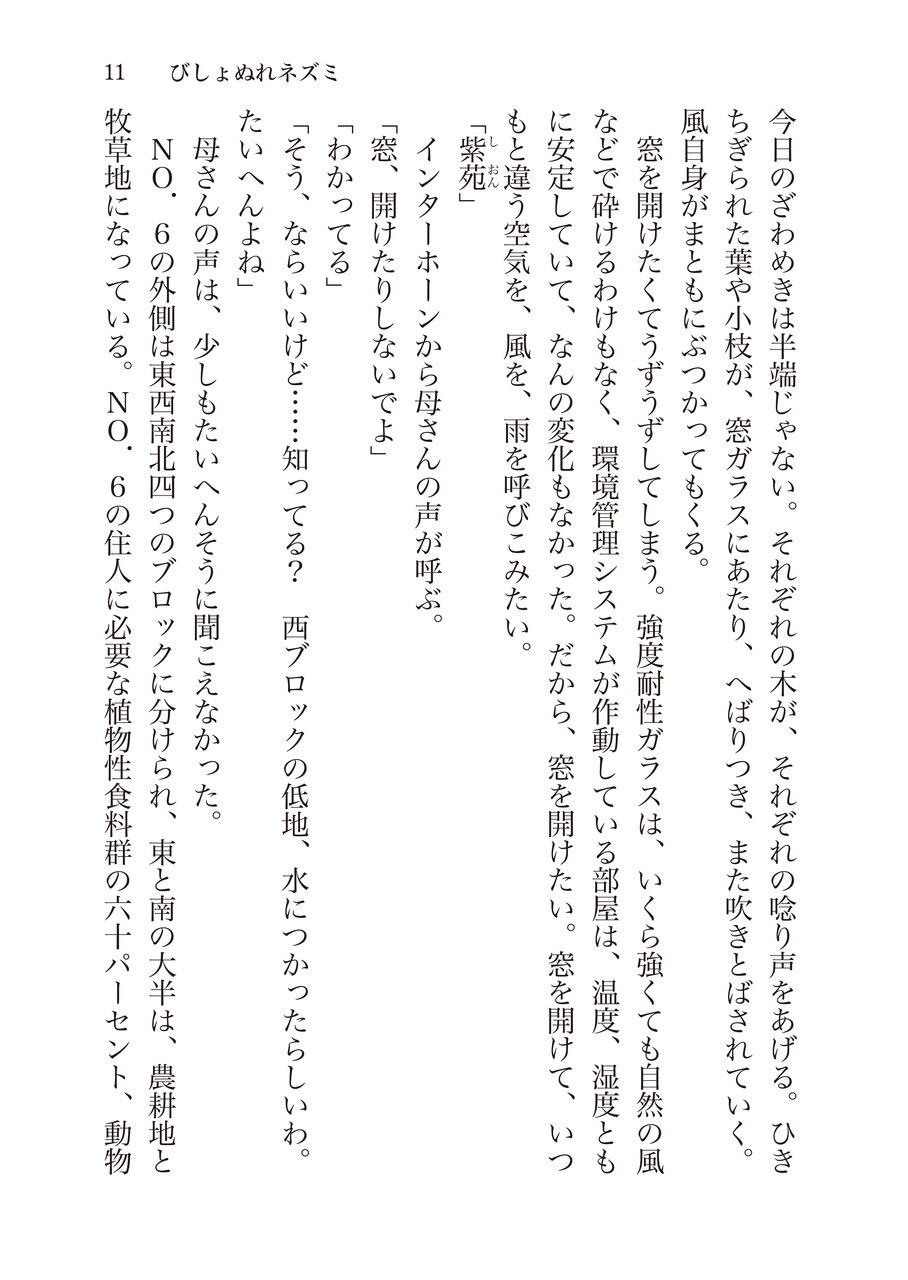 11 びしょぬれネズミ
今日のざわめきは半端じゃない。それぞれの木が、それぞれの唸り声をあげる。ひき
ちぎられた葉や小枝が、窓ガラスにあたり、へばりつき、また吹きとばされていく。
風自身がまともにぶつかってもくる。
　窓を開けたくてうずうずしてしまう。強度耐性ガラスは、いくら強くても自然の風
などで砕けるわけもなく、環境管理システムが作動している部屋は、温度、湿度とも
に安定していて、なんの変化もなかった。だから、窓を開けたい。窓を開けて、いつ
もと違う空気を、風を、雨を呼びこみたい。
「紫苑」
しおん
　インターホーンから母さんの声が呼ぶ。
「窓、開けたりしないでよ」
「わかってる」
「そう、ならいいけど……知ってる？　西ブロックの低地、水につかったらしいわ。
たいへんよね」
　母さんの声は、少しもたいへんそうに聞こえなかった。
　ＮＯ．６の外側は東西南北四つのブロックに分けられ、東と南の大半は、農耕地と
牧草地になっている。ＮＯ．６の住人に必要な植物性食料群の六十パーセント、動物